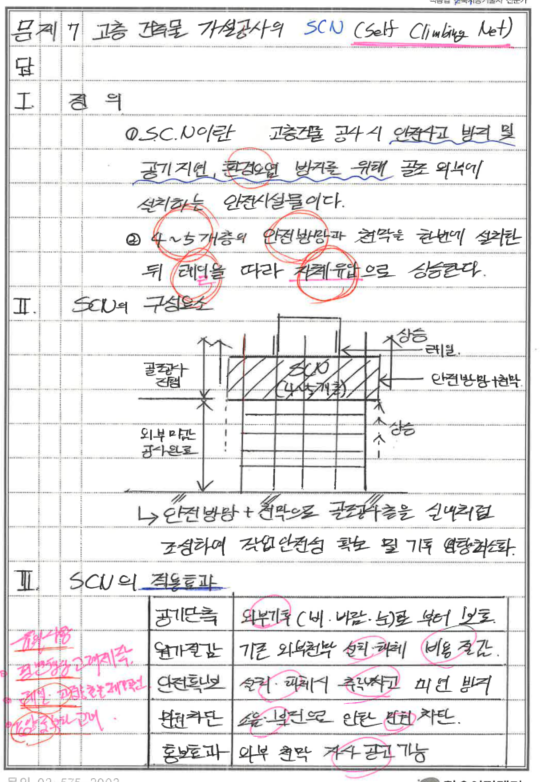 문제 7 고층 건축물 가설공사의 SCN (Self Climbing Net)
답
I. 정의
① S.C.N이란 고층건물 공사시 안전사고 방지 및
공기지연, 환경오염 방지를 위해 골조 외부에
설치하는 안전시설물이다.
② 4~5개층의 안전방망과 천막을 한번에 설치한
뒤 레일을 따라 자체유압으로 상승한다.
II. SCN의 구성요소
상승
레일
골조공사
SCN
(4~5개층)
안전방망+천막
외부마감
공사완료
상승
↳ 안전방망 + 천막으로 골조공사층을 실내처럼
조성하여 작업안전성 확보 및 기후 영향최소화.
III. SCN의 적용효과
공기단축 외부기후 (비·바람·눈)로 부터 보호.
원가절감 기존 외부천막 설치·해체 비용 절감.
안전확보 설치·해체시 추락사고 미연 방지
민원차단 소음·분진으로 인한 민원 차단.
홍보효과 외부 천막 자사 광고 가능